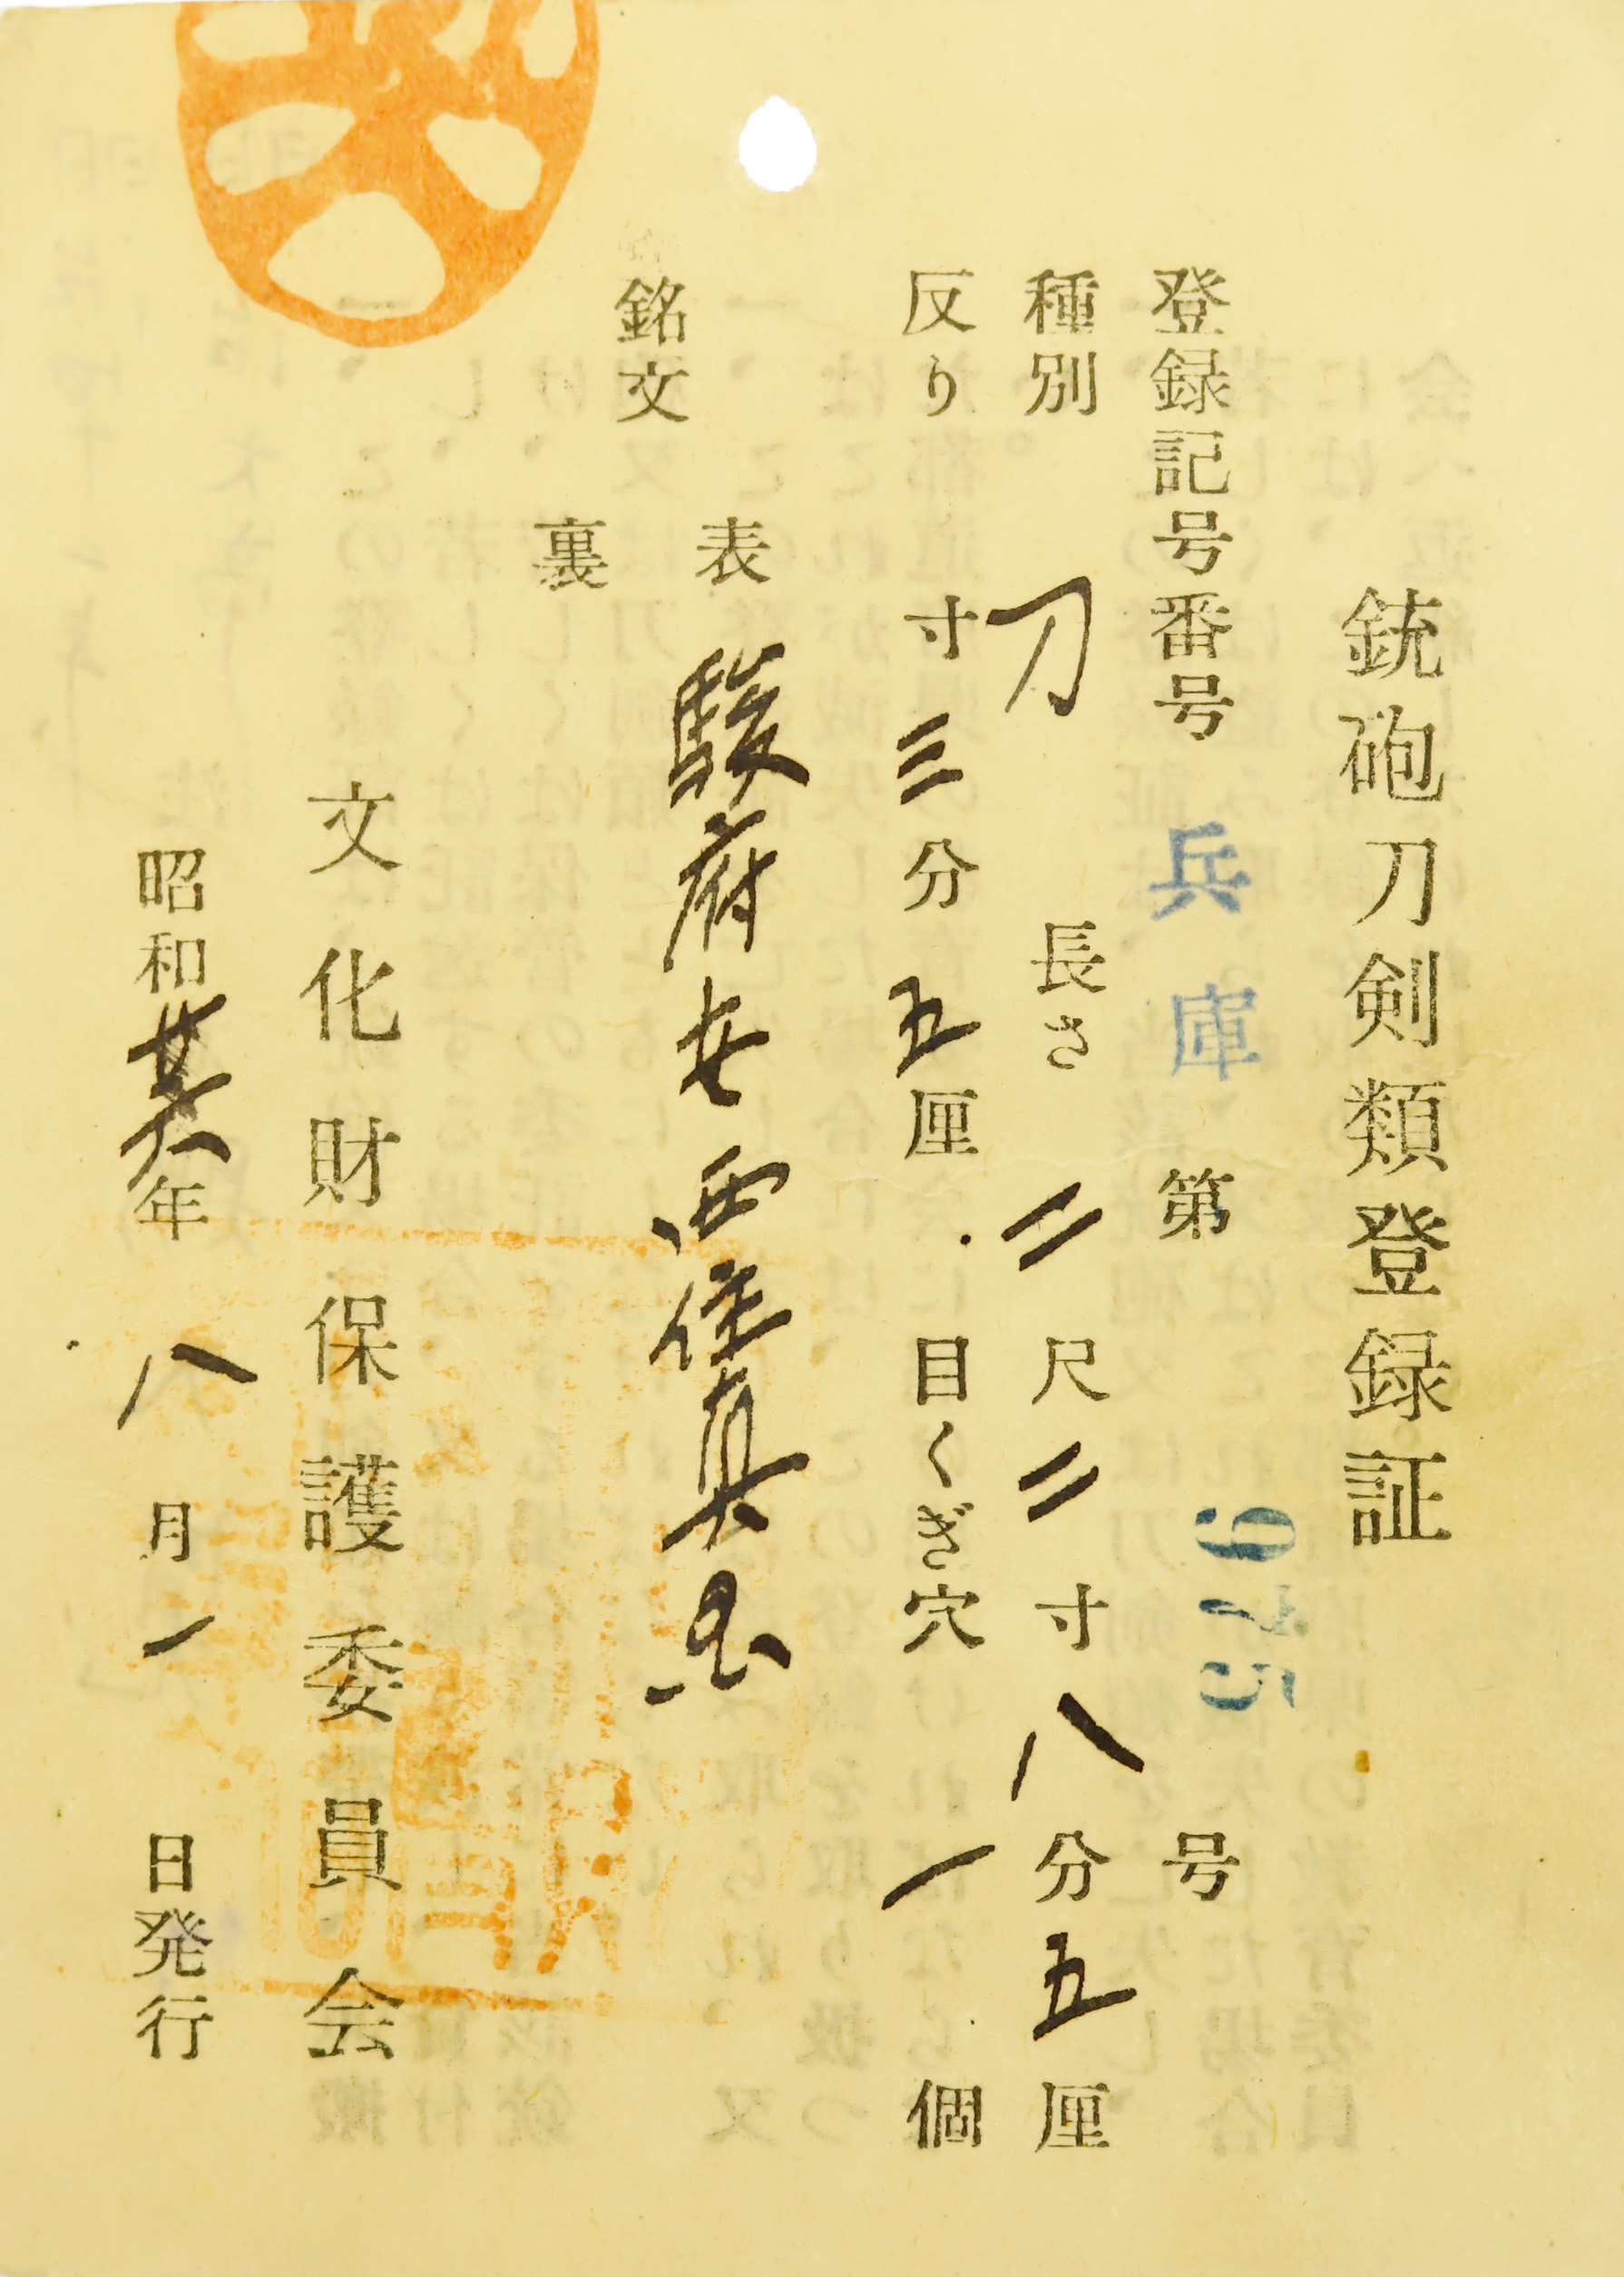 銃砲刀剣類登録証
登録記号番号 兵庫 第 号
種別 刀 長さ 二尺二寸八分五厘
反り 寸三分五厘 目くぎ穴 一個
銘文
表 駿府安西住真
裏
文化財保護委員会
昭和廿六年八月一日発行